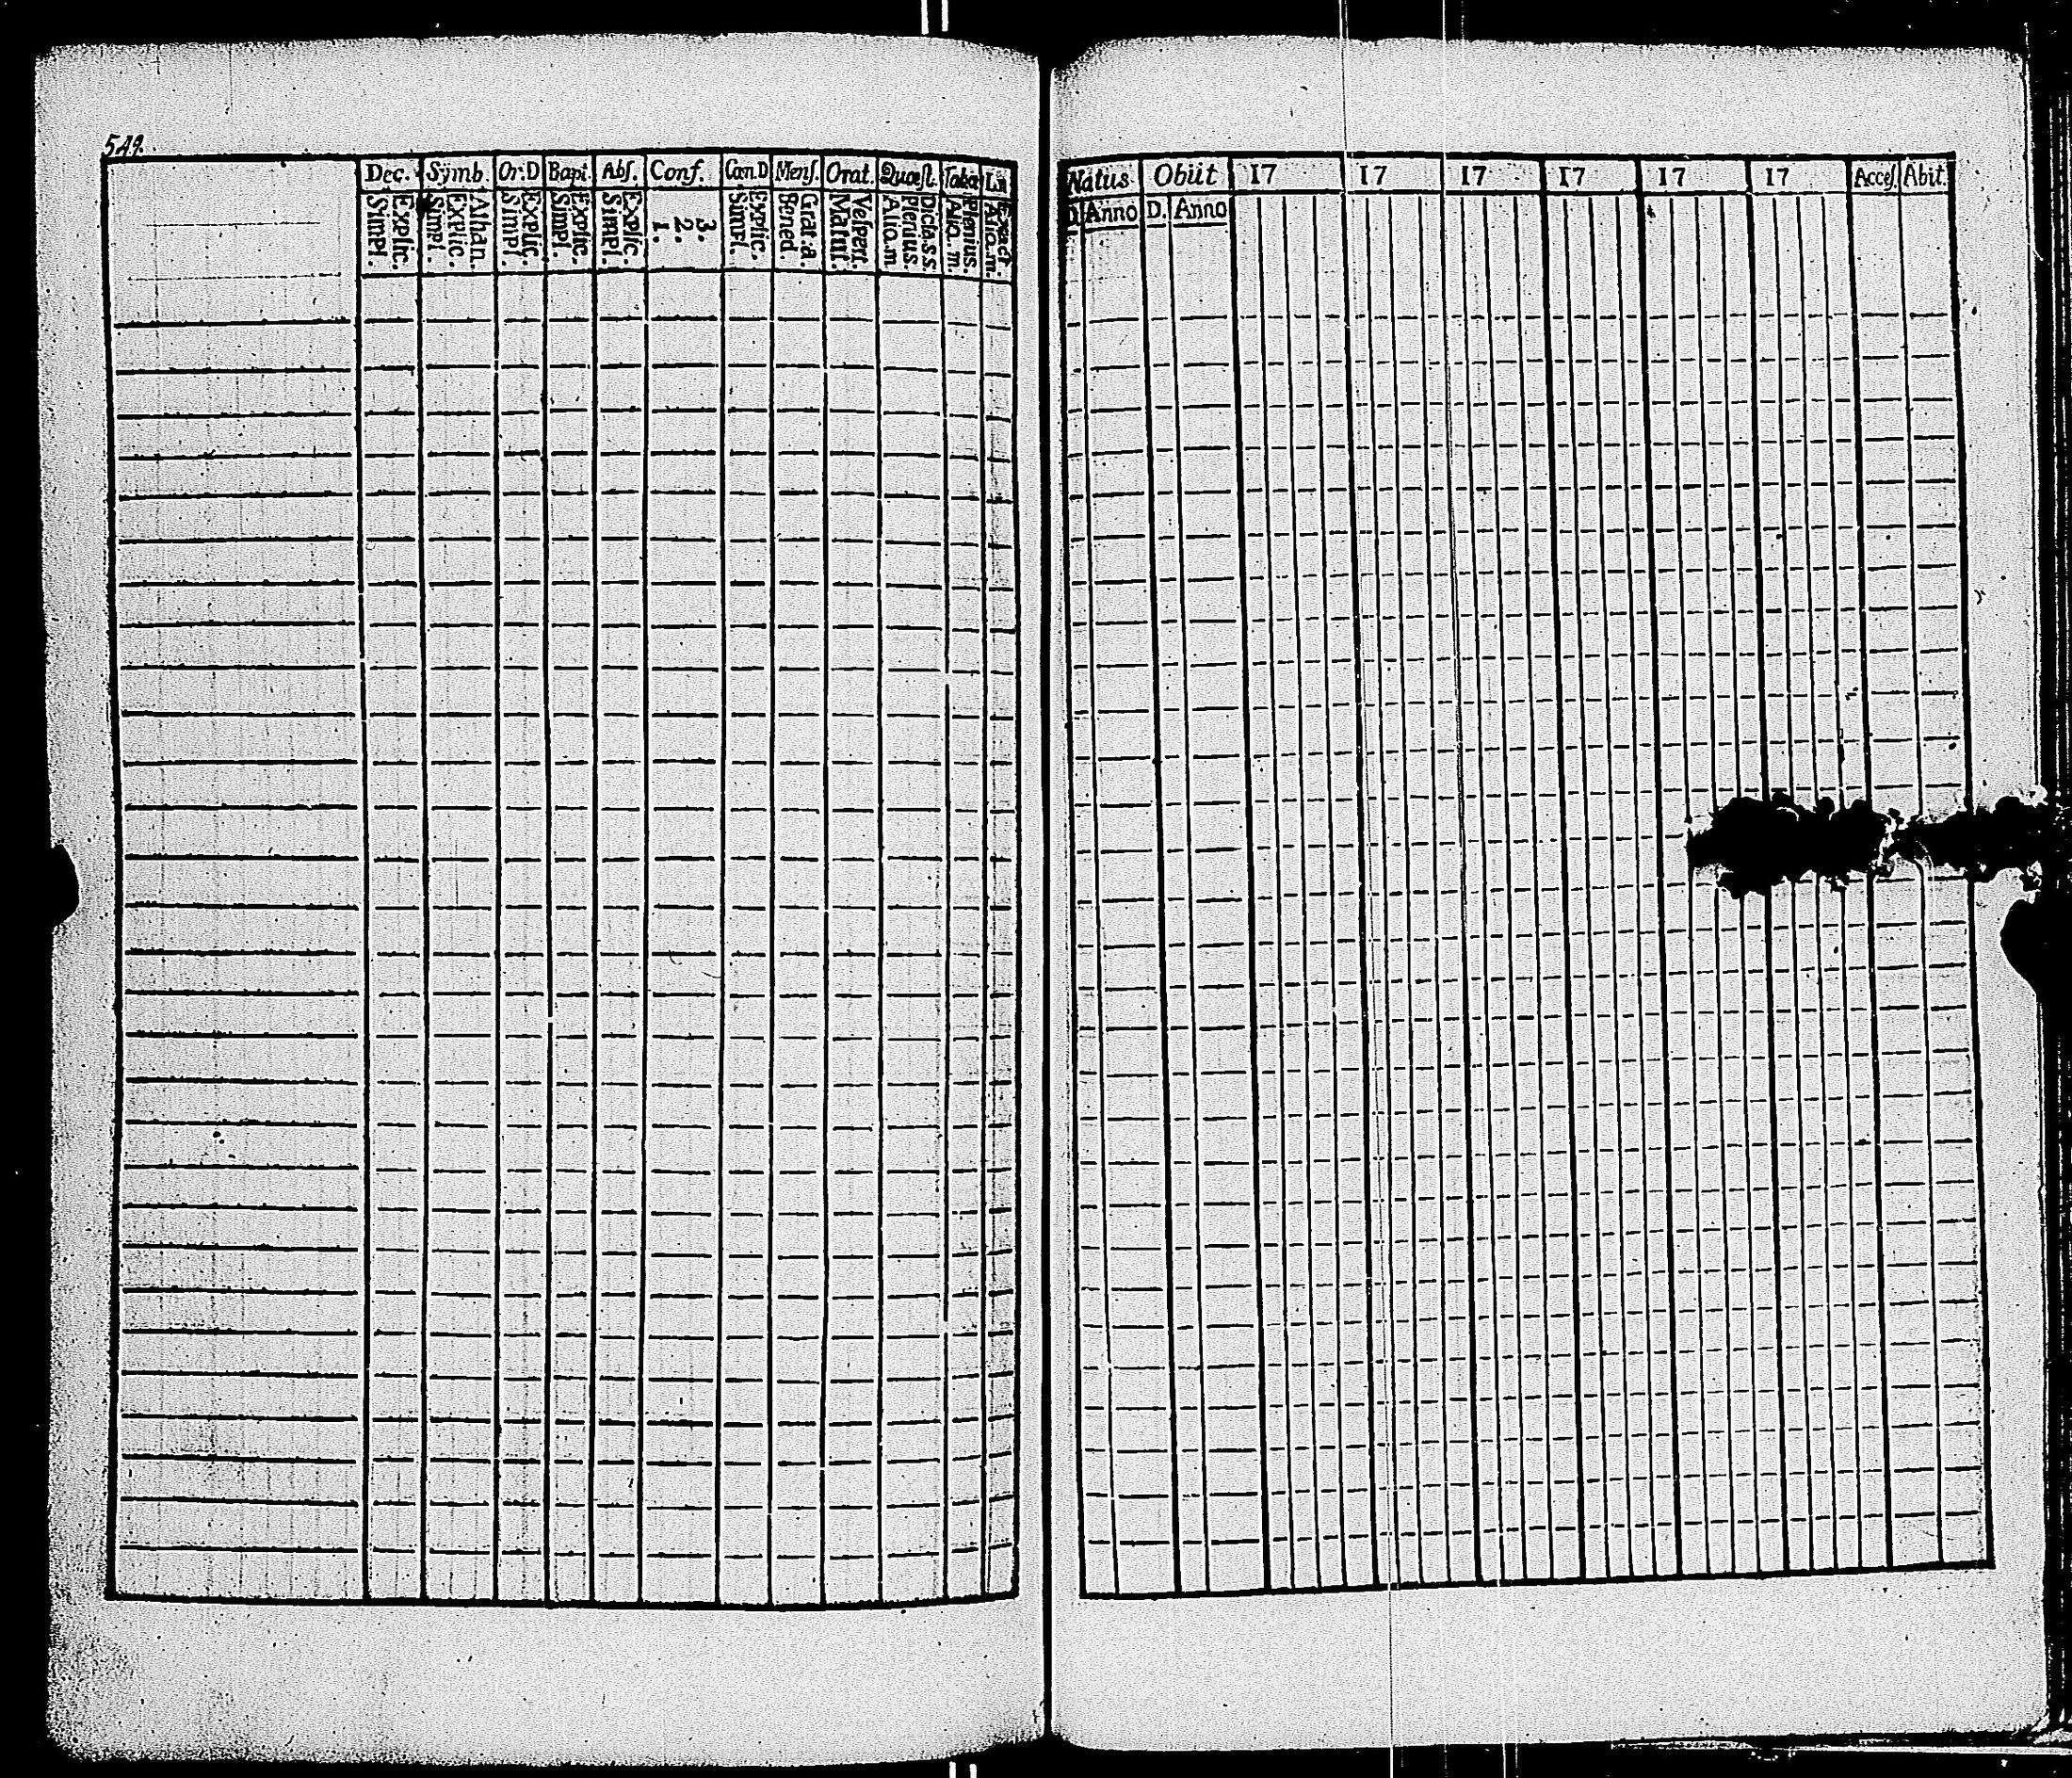 549.
Dec. Sÿmb. Or. D Bapt. Abſ. Conf. Cœn. D Menſ. Orat. Quæſt. Tabæ
Simpl. Explic. Simpl. Explic. Athan. Simpl. Explic. Simpl. Explic. Simpl. Explic. 1. 2. 3. Simpl. Explic. Bened. Grat. a. Matut. Veſpert. Alio. m. Plenius. Dicta. s. s. Alio. m. Plenius. Alio. m. Exact.
Natus Obiit 17 17 17 17 17 17 Acceſ. Abit.
D. Anno D. Anno